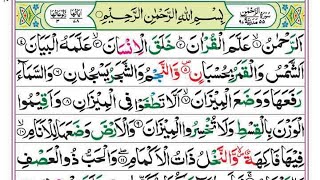 بِسْمِ اللّٰهِ الرَّحْمٰنِ الرَّحِيْمِ
اَلرَّحْمٰنُ ۙ عَلَّمَ الْقُرْاٰنَ ؕ خَلَقَ الْاِنْسَانَ ۙ عَلَّمَهُ الْبَيَانَ
اَلشَّمْسُ وَالْقَمَرُ بِحُسْبَانٍ ۪ وَّالنَّجْمُ وَالشَّجَرُ يَسْجُدٰنِ وَالسَّمَآءَ
رَفَعَهَا وَوَضَعَ الْمِيْزَانَ ۙ اَلَّا تَطْغَوْا فِى الْمِيْزَانِ وَاَقِيْمُوا
الْوَزْنَ بِالْقِسْطِ وَلَا تُخْسِرُوا الْمِيْزَانَ وَالْاَرْضَ وَضَعَهَا لِلْاَنَامِ ۙ
فِيْهَا فَاكِهَةٌ ۪ وَّالنَّخْلُ ذَاتُ الْاَكْمَامِ ۖ وَالْحَبُّ ذُو الْعَصْفِ